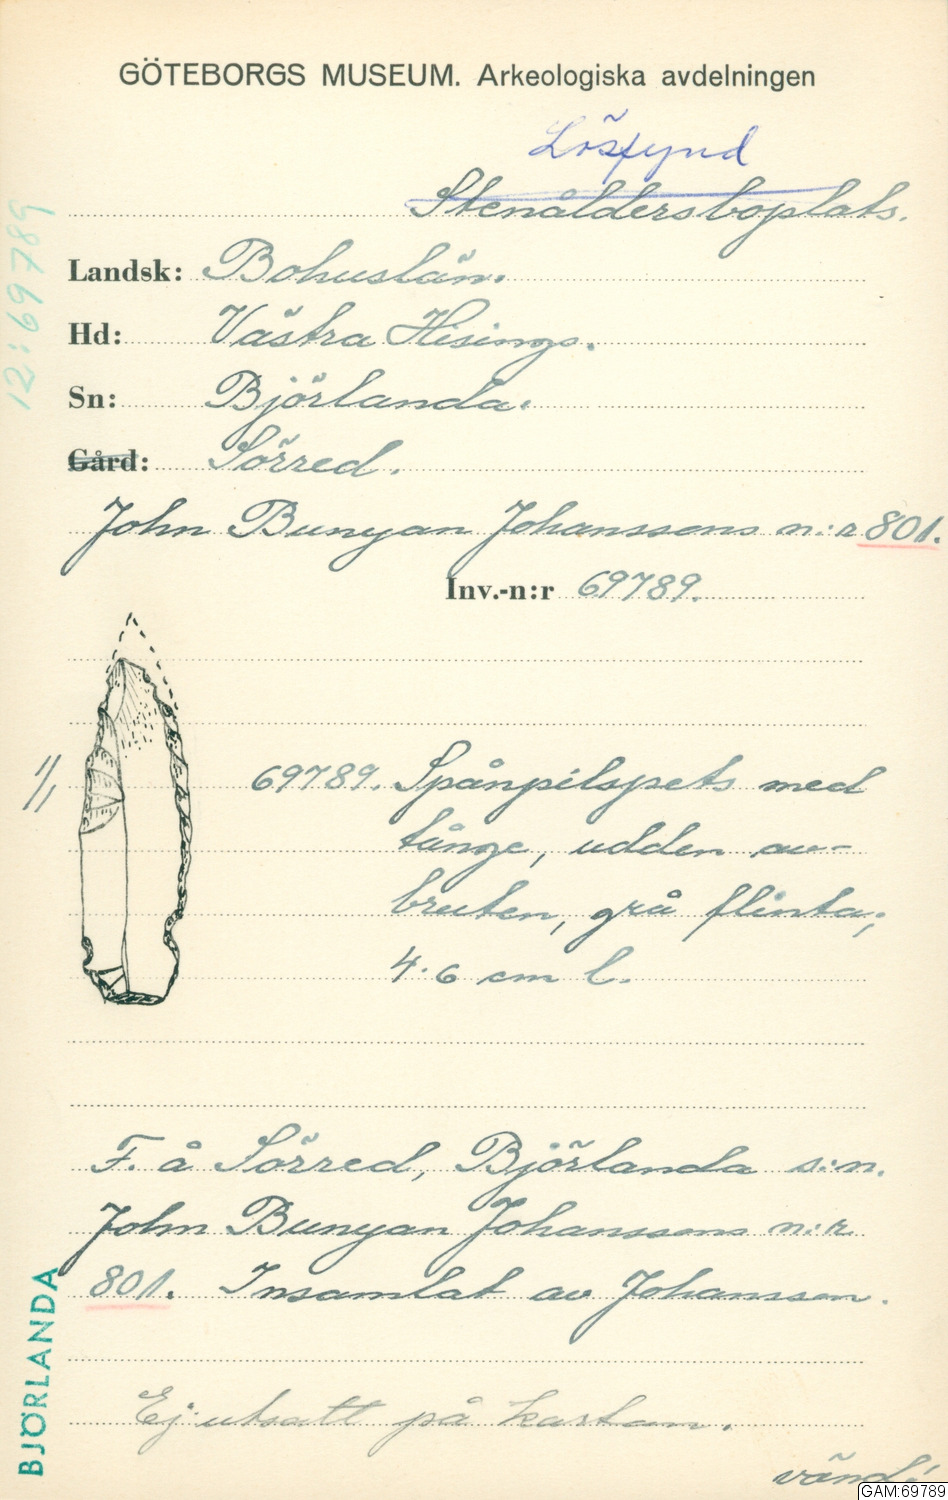 GÖTEBORGS MUSEUM. Arkeologiska avdelningen
Lösfynd
Stenåldersboplats.
12:69789
Landsk: Bohuslän.
Hd: Västra Hisings.
Sn: Björlanda.
Gård: Sörred.
John Bunyan Johanssons n:r 801.
Inv.-n:r 69789.
1/1
69789. Spånpilspets med
tånge, udden av-
bruten, grå flinta;
4.6 cm l.
F. å Sörred, Björlanda s:n.
John Bunyan Johanssons n:r
801. Insamlat av Johansson.
BJÖRLANDA
Ej utsatt på kartan.
vänd!
GAM:69789